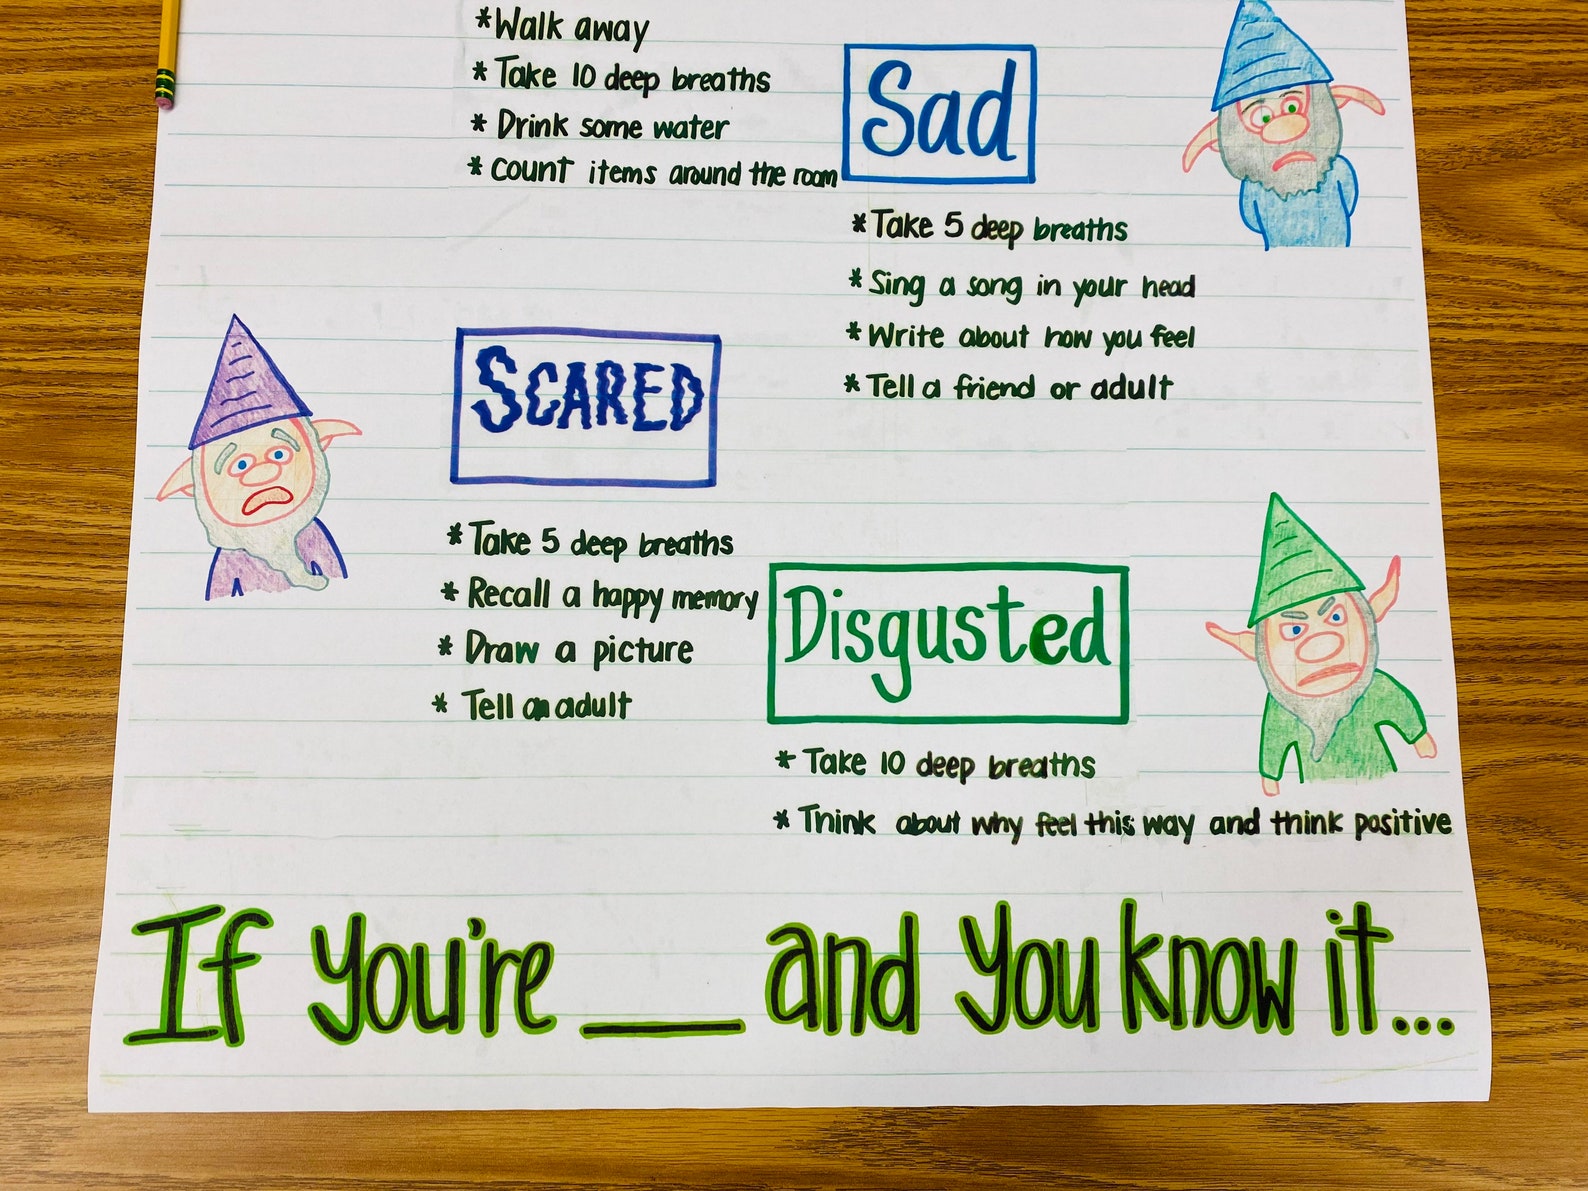 *Walk away
*Take 10 deep breaths
*Drink some water
*count items around the room
Sad
*Take 5 deep breaths
*Sing a song in your head
*Write about how you feel
*Tell a friend or adult
SCARED
*Take 5 deep breaths
*Recall a happy memory
*Draw a picture
*Tell an adult
Disgusted
*Take 10 deep breaths
*Think about why feel this way and think positive
If you're ___ and you know it...